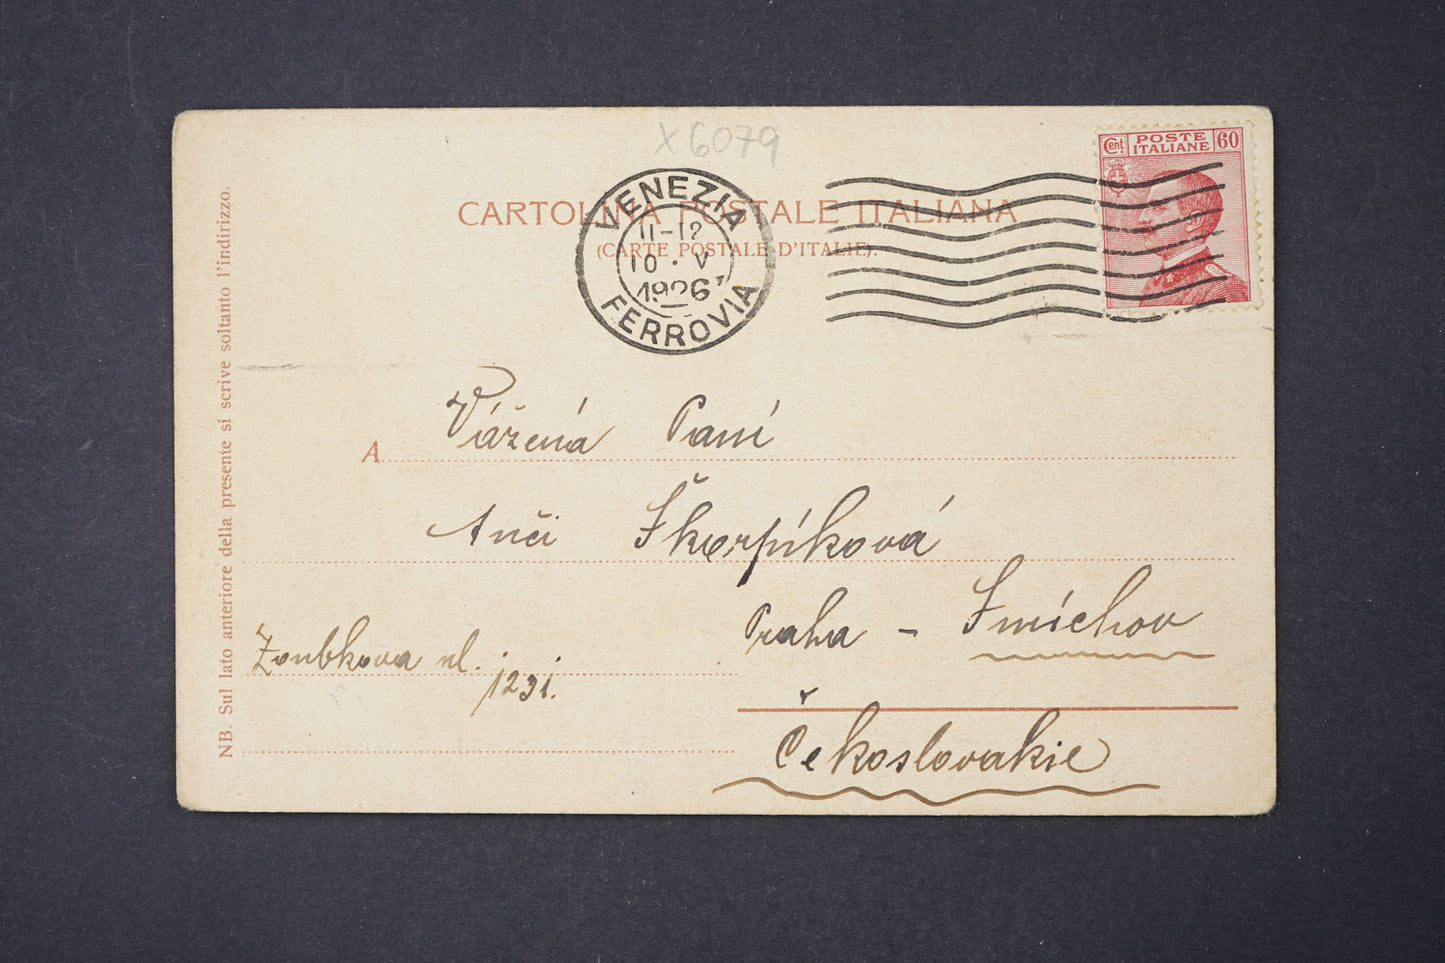 X6079
Cent. POSTE ITALIANE 60
VENEZIA
11-12
10 · V
1926
FERROVIA
CARTOLINA POSTALE ITALIANA
(CARTE POSTALE D'ITALIE).
NB. Sul lato anteriore della presente si scrive soltanto l'indirizzo.
A Vážená Paní
Anči Škorpíková
Praha - Smíchov
Zoubkova ul.
1231.
Čekoslovakie